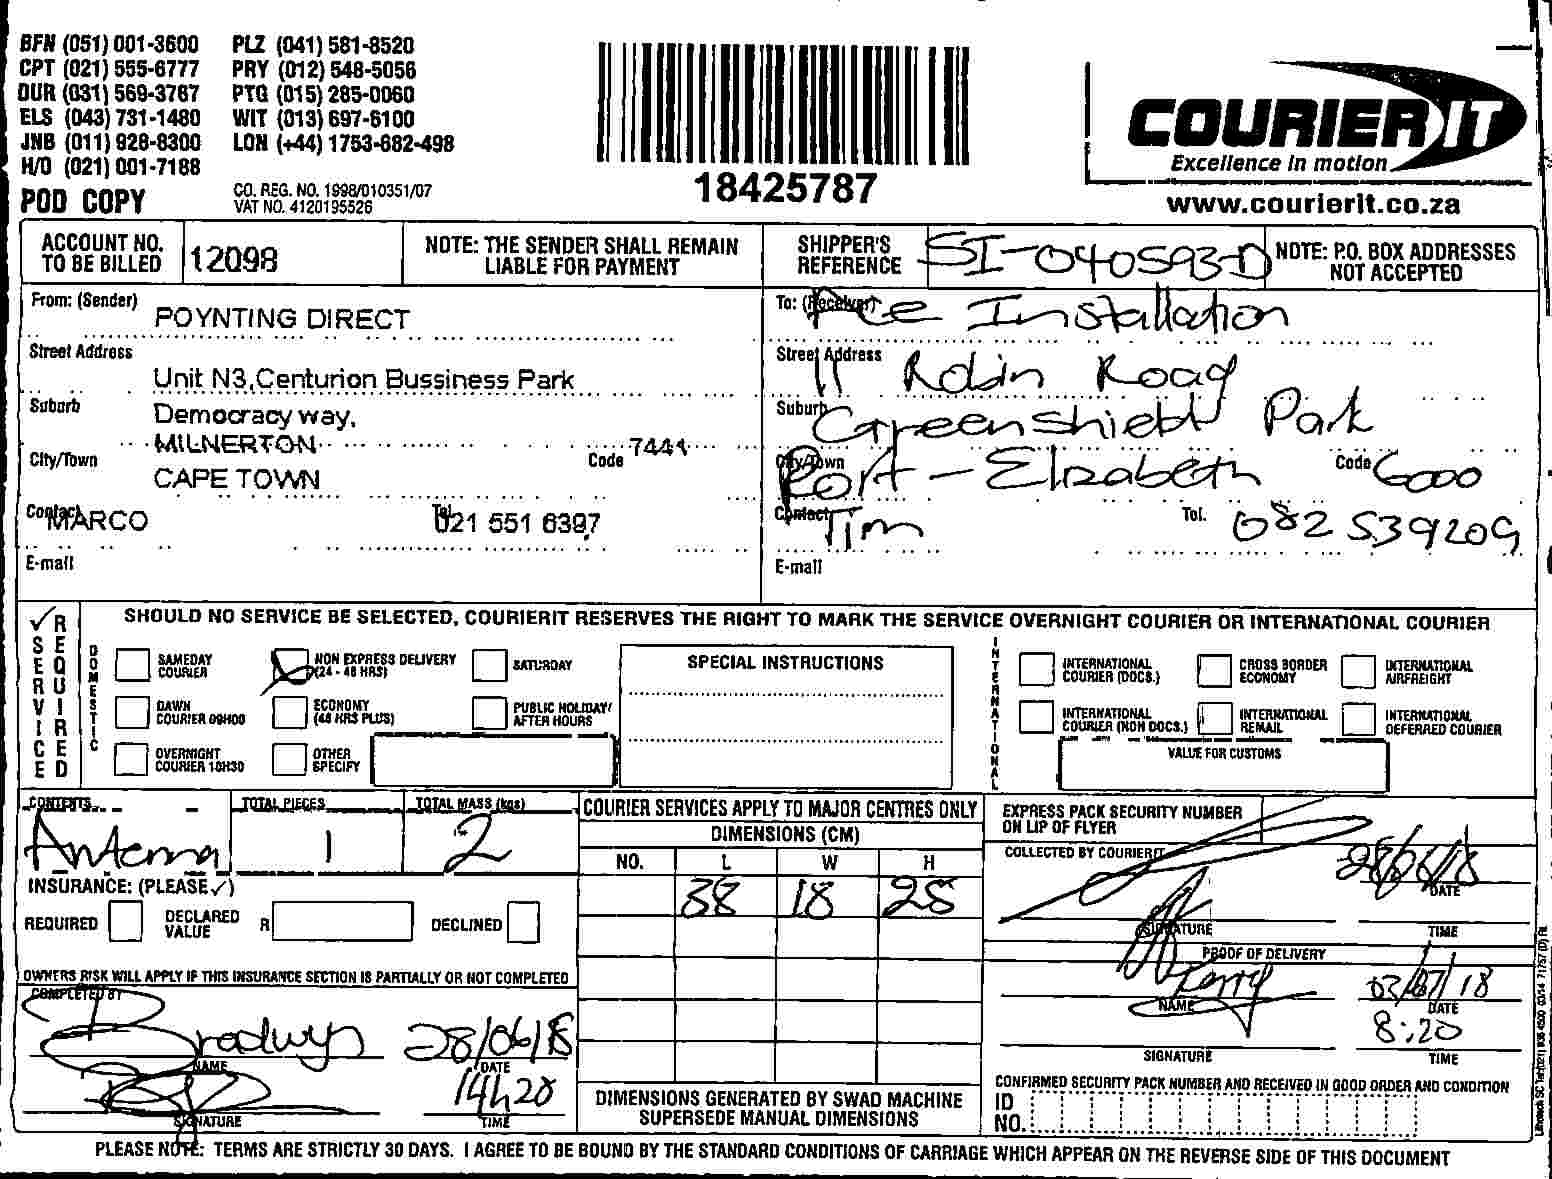 BFN (051) 001-3600 PLZ (041) 581-8520
CPT (021) 555-6777 PRY (012) 548-5056
DUR (031) 569-3767 PTG (015) 285-0060
ELS (043) 731-1480 WIT (013) 697-6100
JNB (011) 928-8300 LON (+44) 1753-682-498
H/O (021) 001-7188
POD COPY
CO. REG. NO. 1998/010351/07
VAT NO. 4120195526
18425787
COURIER IT
Excellence in motion
www.courierit.co.za
ACCOUNT NO. TO BE BILLED 12098
NOTE: THE SENDER SHALL REMAIN LIABLE FOR PAYMENT
SHIPPER'S REFERENCE SI-040593-D
NOTE: P.O. BOX ADDRESSES NOT ACCEPTED
From: (Sender) POYNTING DIRECT
Street Address Unit N3,Centurion Bussiness Park
Suburb Democracy way,
MILNERTON Code 7441
City/Town CAPE TOWN
Contact MARCO Tel. 021 551 6397
E-mail
To: (Receiver) Ace Installation
Street Address 11 Robin Road
Suburb Greenshield Park
City/Town Port-Elizabeth Code 6000
Contact Tim Tel. 082 539209
E-mail
SERVICE REQUIRED
SHOULD NO SERVICE BE SELECTED, COURIERIT RESERVES THE RIGHT TO MARK THE SERVICE OVERNIGHT COURIER OR INTERNATIONAL COURIER
DOMESTIC
SAMEDAY COURIER
NON EXPRESS DELIVERY (24 - 48 HRS)
SATURDAY
DAWN COURIER 09H00
ECONOMY (48 HRS PLUS)
PUBLIC HOLIDAY/ AFTER HOURS
OVERNIGHT COURIER 10H30
OTHER SPECIFY
SPECIAL INSTRUCTIONS
INTERNATIONAL
INTERNATIONAL COURIER (DOCS.)
CROSS BORDER ECONOMY
INTERNATIONAL AIRFREIGHT
INTERNATIONAL COURIER (NON DOCS.)
INTERNATIONAL REMAIL
INTERNATIONAL DEFERRED COURIER
VALUE FOR CUSTOMS
CONTENTS Antenna
TOTAL PIECES 1
TOTAL MASS (kgs) 2
INSURANCE: (PLEASE ✓)
REQUIRED DECLARED VALUE R DECLINED
OWNERS RISK WILL APPLY IF THIS INSURANCE SECTION IS PARTIALLY OR NOT COMPLETED
COMPLETED BY
Bradwyn 28/06/18
NAME DATE
14h20
SIGNATURE TIME
COURIER SERVICES APPLY TO MAJOR CENTRES ONLY
DIMENSIONS (CM)
NO. L W H
38 18 28
DIMENSIONS GENERATED BY SWAD MACHINE SUPERSEDE MANUAL DIMENSIONS
EXPRESS PACK SECURITY NUMBER ON LIP OF FLYER
COLLECTED BY COURIERIT
28/06/18
DATE
SIGNATURE TIME
PROOF OF DELIVERY
03/07/18
NAME DATE
8:20
SIGNATURE TIME
CONFIRMED SECURITY PACK NUMBER AND RECEIVED IN GOOD ORDER AND CONDITION
ID NO.
PLEASE NOTE: TERMS ARE STRICTLY 30 DAYS. I AGREE TO BE BOUND BY THE STANDARD CONDITIONS OF CARRIAGE WHICH APPEAR ON THE REVERSE SIDE OF THIS DOCUMENT